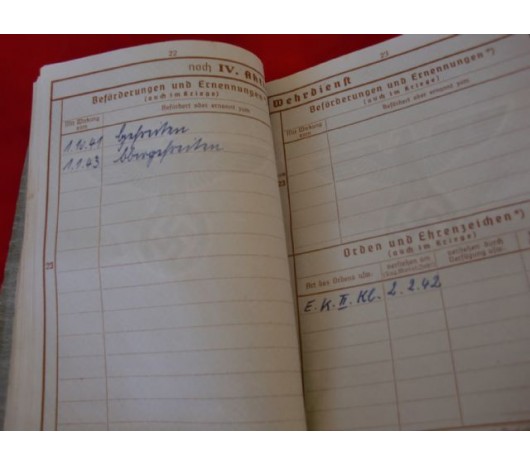 22
noch IV. Akt
Beförderungen und Ernennungen
(auch im Kriege)
Mit Wirkung vom
Befördert oder ernannt zum
1.12.41 Gefreiten
1.1.43 Obergefreiten
22
23
Wehrdienst
Beförderungen und Ernennungen*)
(auch im Kriege)
Mit Wirkung vom
Befördert oder ernannt zum
23
Orden und Ehrenzeichen*)
(auch im Kriege)
Art des Ordens usw.
verliehen am
verliehen durch
Verfügung usw.
E.K. II. Kl. 2.2.42